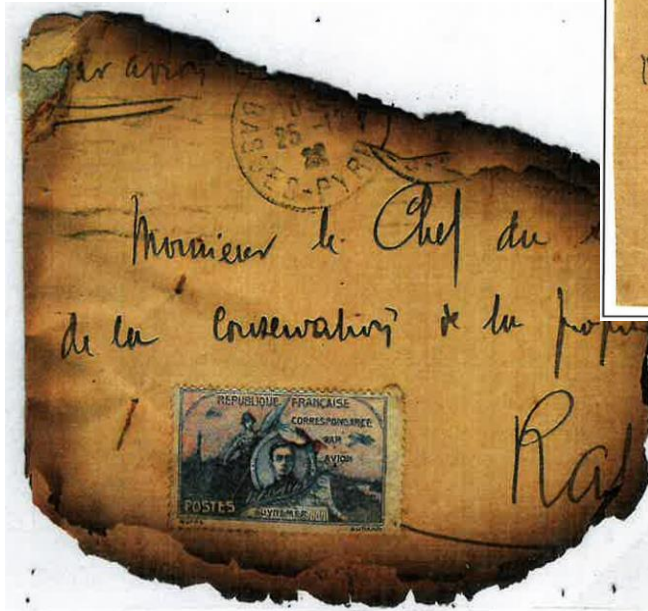 par avion
25
BASSES-PYR
Monsieur le Chef du
de la conservation de la prop
REPUBLIQUE FRANÇAISE
CORRESPONDANCE
PAR
AVION
POSTES
GUYNEMER
Ra